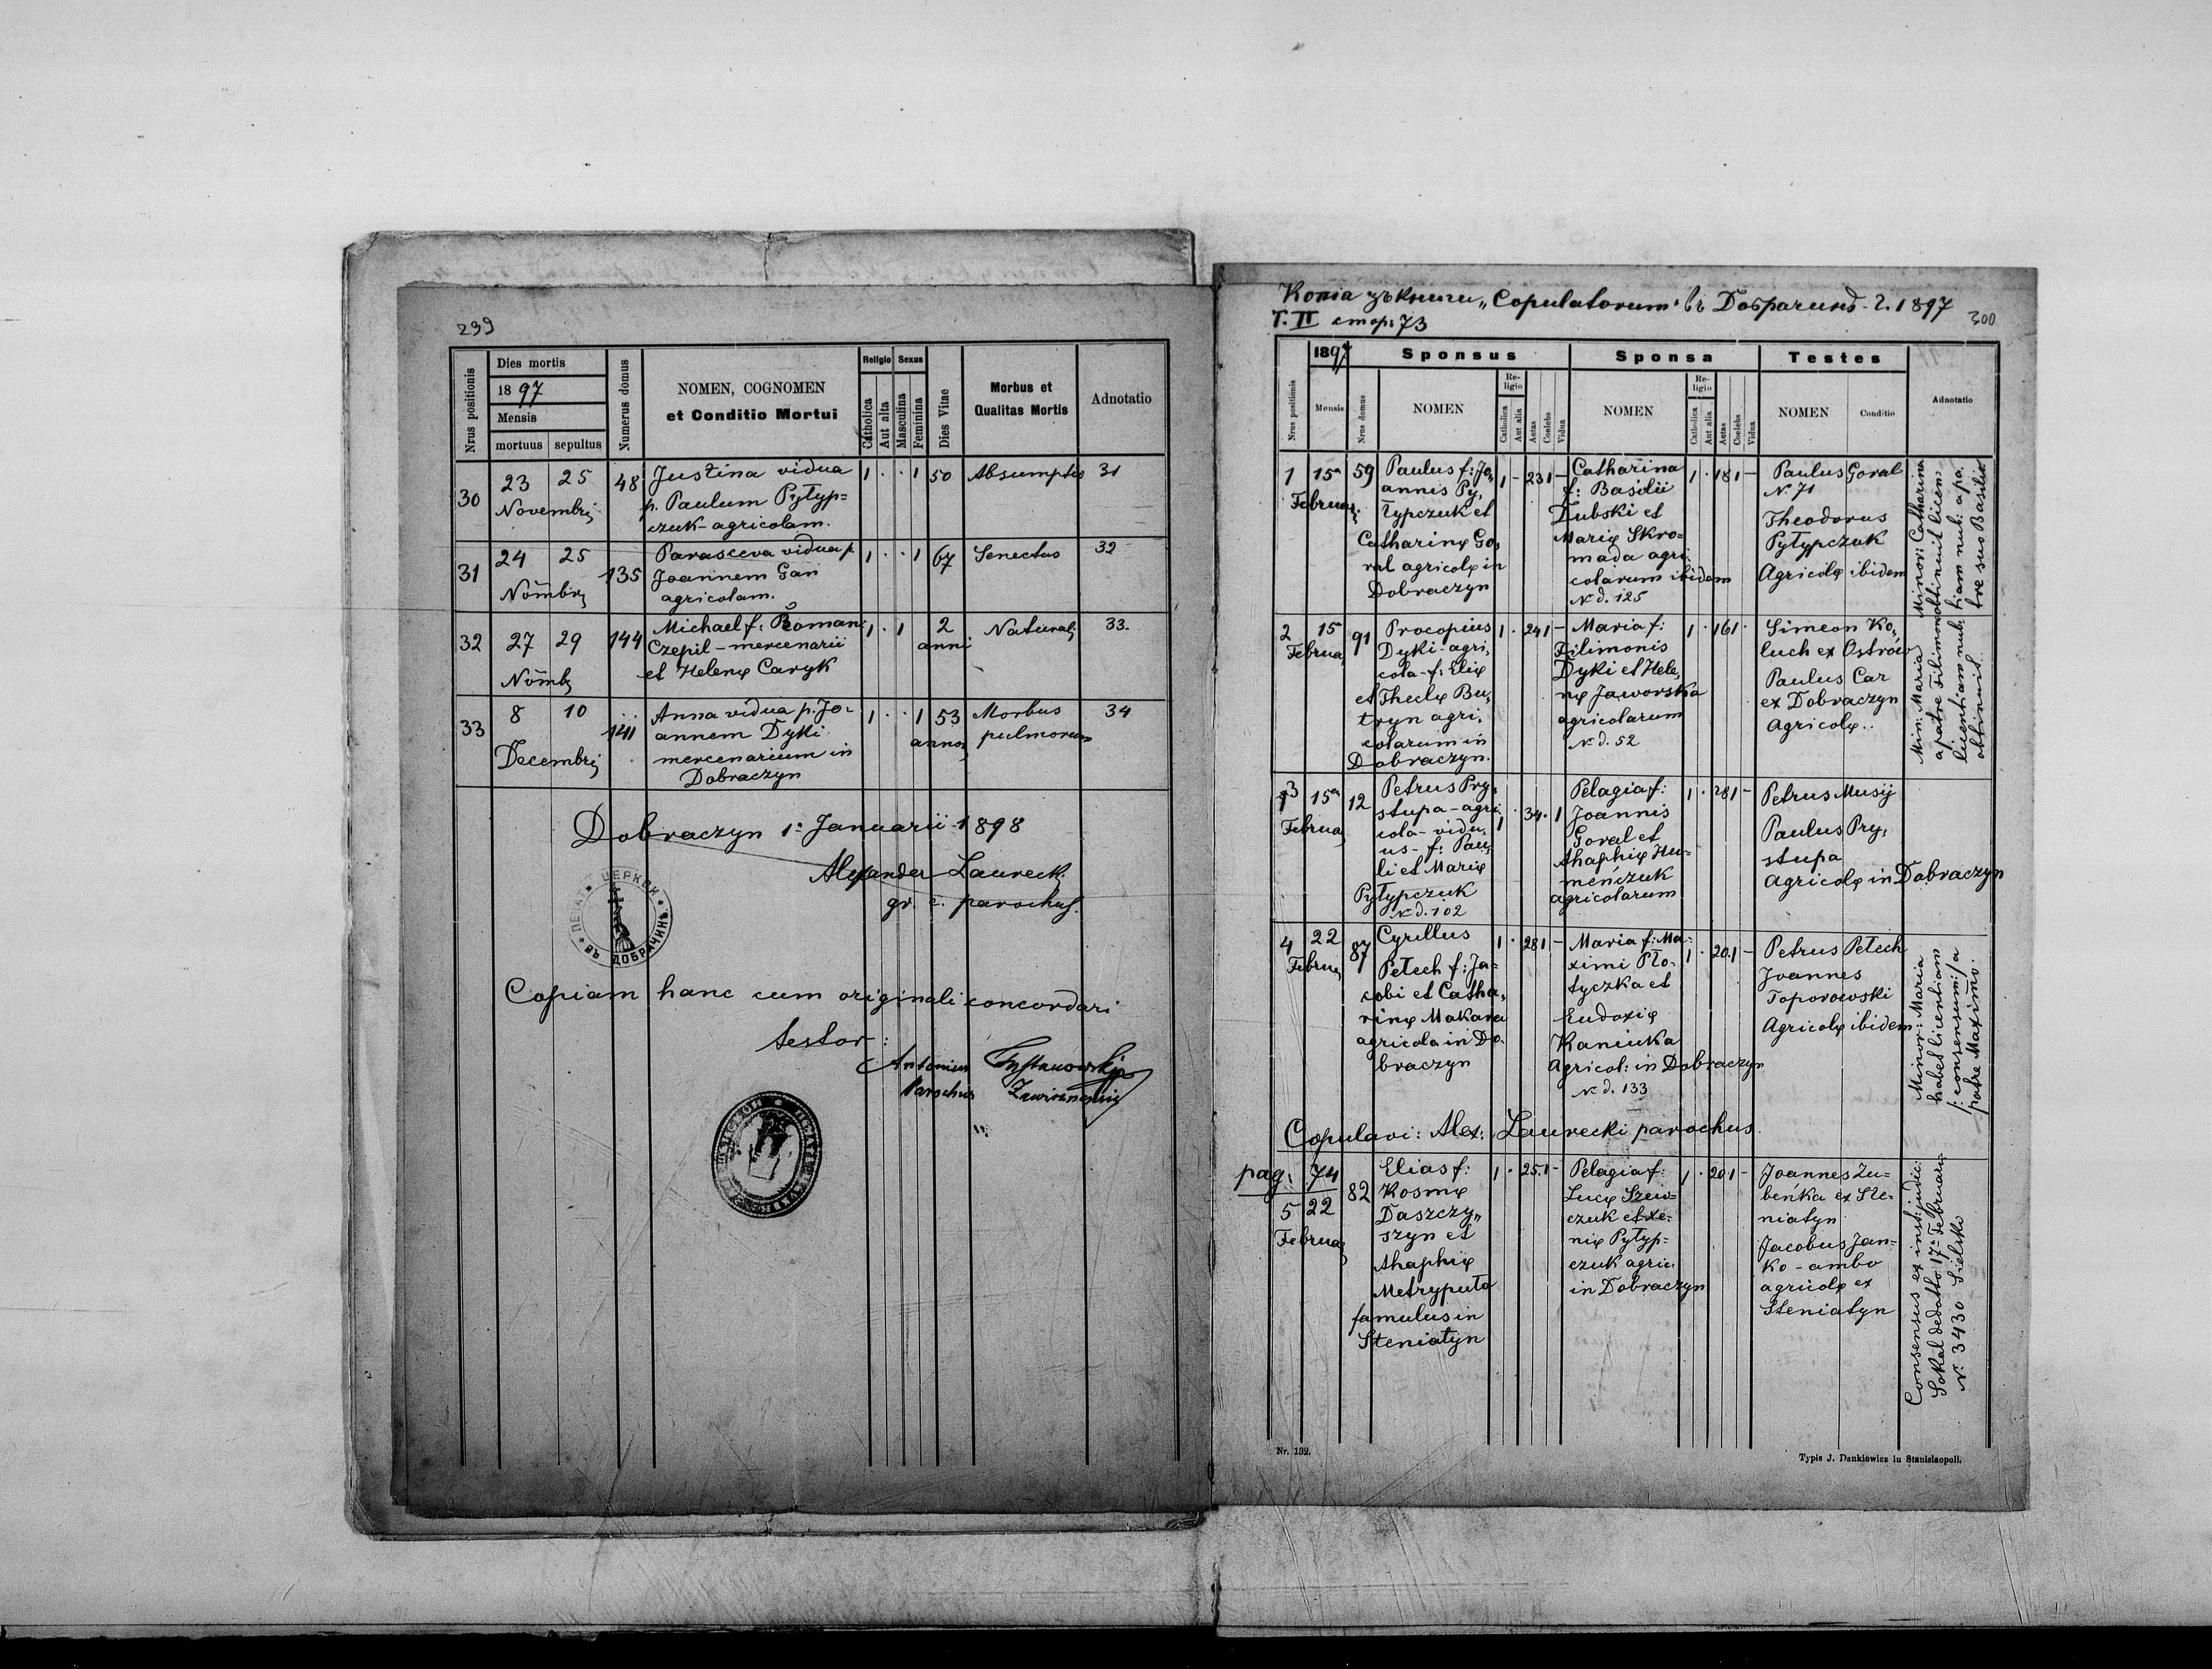 239
Nrus positionis
Dies mortis
1897
Mensis
mortuus
sepultus
Numerus domus
NOMEN, COGNOMEN
et Conditio Mortui
Religio
Sexus
Catholica
Aut alta
Masculina
Feminina
Dies Vitae
Morbus et
Qualitas Mortis
Adnotatio
30
23 25
Novembris
48
Justina vidua
p. Paulum Pyłyp=
czuk-agricolam.
1 . . 1 50
Absumptio
31
31
24 25
Nõmbris
135
Parasceva vidua p.
Joannem Gan
agricolam.
1 . . 1 67
Senectus
32
32
27 29
Nõmb
144
Michael f: Romani
Czepil - mercenarii
et Helenę Caryk
1 . 1
2
anni
Naturalis
33.
33
8 10
Decembris
141
Anna vidua p. Jo-
annem Dyki
mercenarium in
Dobraczyn
1 . . 1 53
annos
Morbus
pulmorum
34
Dobraczyn 1: Januarii 1898
Alexander Laurecki
gr. c. parochus.
ПЕЧАТ ЦЕРКОИ
ВЪ ДОБРАЧИНѢ
Copiam hanc cum originali concordari
testor:
Antonius
Parochus
Копія зъ книги „Copulatorum" въ Добрачинѣ. г. 1897
Т. II стор: 73
300
Nrus positionis
1897
Mensis
Nrus domus
Sponsus
NOMEN
Re-
ligio
Catholica
Aut alia
Aetas
Coelebs
Vidua
Sponsa
NOMEN
Re-
ligio
Catholica
Aut alia
Aetas
Coelebs
Vidua
Testes
NOMEN
Conditio
Adnotatio
1
15a
Februarii
59
Paulus f: Jo,
annis Py,
łypczuk et
Catharinę Go,
ral agricolę in
Dobraczyn
1 - 23 1 -
Catharina
f: Basilii
Dubski et
Marię Skro=
mada agri:
colarum ibidem
N d. 125
1 . 18 1 -
Paulus Goral
N. 71
Theodorus
Pyłypczuk
Agricolę ibidem
Minor: Catharina
obtinuit licen:
tiam nub: a pa,
tre suo Basilio
2
15
Februa
91
Procopius
Dyki - agri,
cola - f: Elię
et Theclę Bu,
tryn agri,
colarum in
Dobraczyn.
1 . 24 1 -
Maria f:
Filimonis
Dyki et Hele,
nę Jaworska
agricolarum
N d. 52
1 . 16 1 .
Simeon Ko,
luch ex Ostrów
Paulus Car
ex Dobraczyn
Agricolę..
Min: Maria
a patre Filimon
licentiam nub:
obtinuit.
3
15a
Februa
12
Petrus Pry,
stupa - agri:
cola - vidu,
us - f: Pau,
li et Marię
Pyłypczuk
N d. 102
1 . 34 . 1
Pelagia f:
Joannis
Goral et
Ahaphię Hu=
meńczuk
agricolarum
1 . 28 1 -
Petrus Musij
Paulus Pry,
stupa
Agricolę in Dobraczyn
4
22
Februa
87
Cyrillus
Petech f: Ja=
cobi et Catha,
rinę Makara
agricola in Do.
braczyn
1 . 28 1 -
Maria f: Ma:
ximi Pło-
tyczka et
Eudoxię
Kaniuka
Agricol: in Dobraczyn
N d. 133
1 . 20 1 -
Petrus Petech
Joannes
Toporowski
Agricolę ibidem
Minor: Maria
habet licentiam
/: consensum:/ a
patre Maximo.
Copulavi: Alex: Laurecki parochus.
pag. 74
5
22
Februa
82
Elias f:
Kosmę
Daszczy„
szyn et
Ahaphię
Metryputa
famulus in
Steniatyn
1 . 25 1 -
Pelagia f:
Lucę Szew=
czuk et Xe-
nię Pyłyp=
czuk agric:
in Dobraczyn
1 . 20 1 -
Joannes Zu=
beńka ex Ste-
niatyn
Jacobus Jan=
ko - ambo
agricolę ex
Steniatyn
Consensus ex inst: judic:
Sokal de dato 17a Februarii
N. 3430 Sielski
Nr. 132.
Typis J. Dankiewicz in Stanislaopoli.